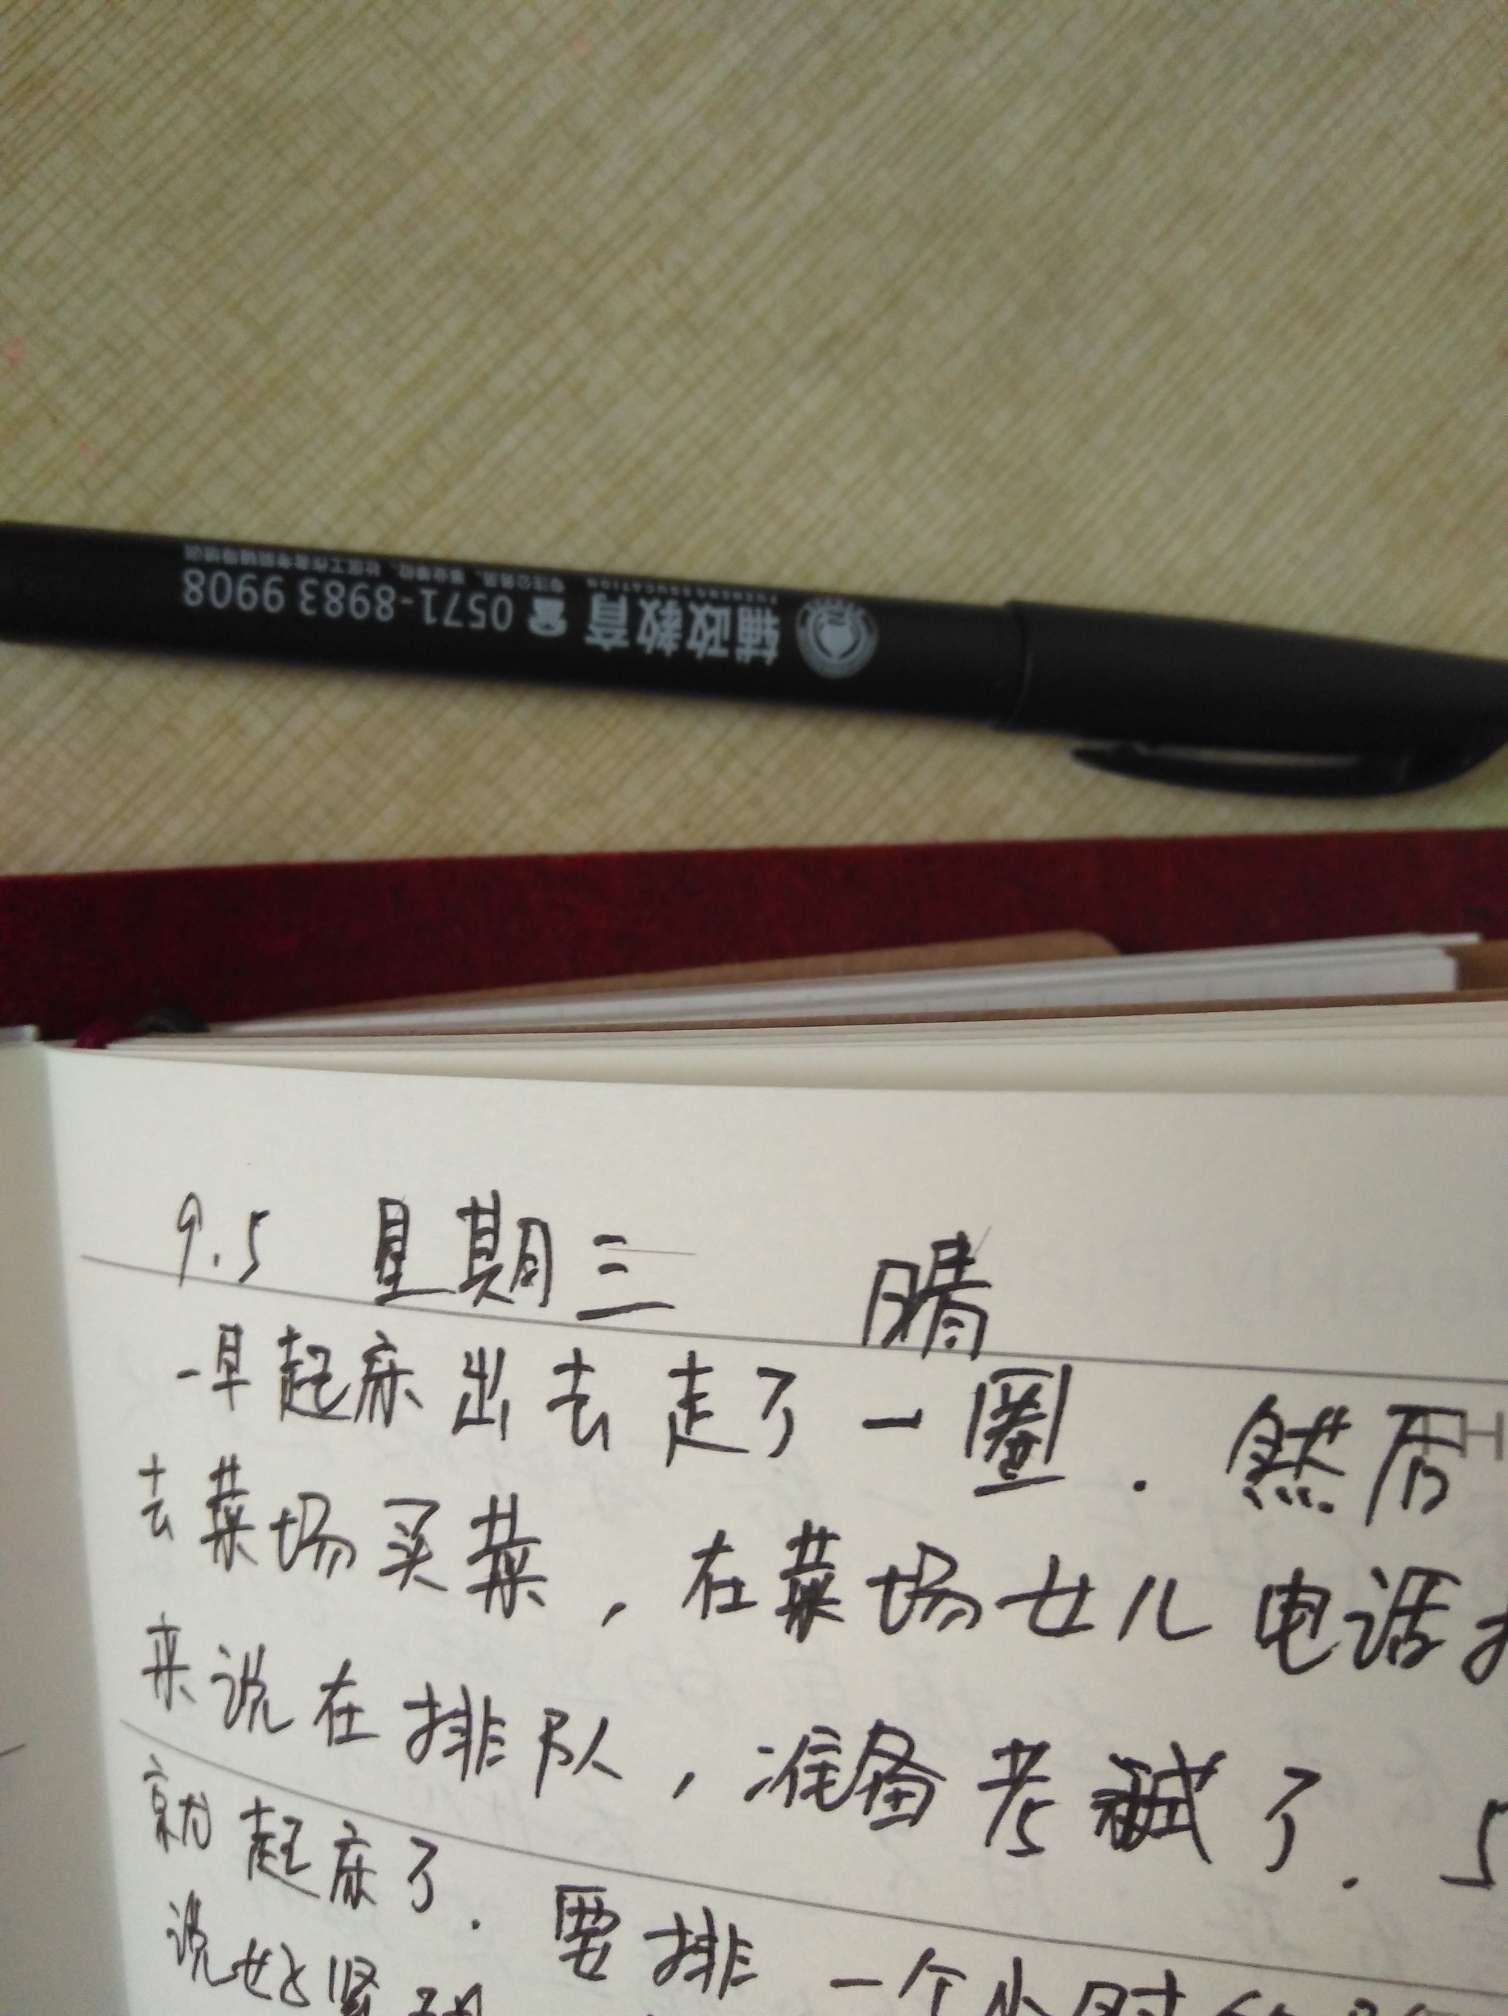 辅政教育 ☎ 0571-8983 9908
FUZHENG EDUCATION
9.5 星期三 晴
一早起床出去走了一圈. 然后
去菜场买菜, 在菜场女儿电话
来说在排队, 准备考试了. 5
就起床了. 要排一个小时
说好紧